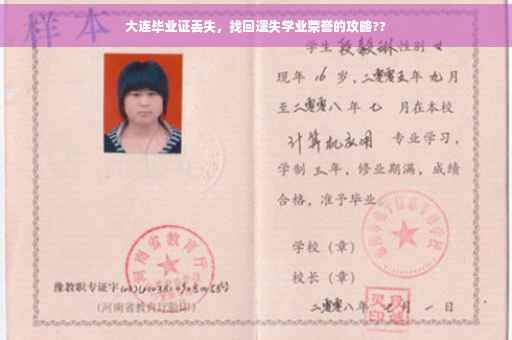 大连毕业证丢失，找回遗失学业荣誉的攻略??
样本
学生 段毅琳 性别 女
现年 16 岁，二零零五年 九 月
至二零零八年 七 月在本校
计算机应用 专业学习，
学制 三 年，修业期满，成绩
合格，准予毕业
学校（章）
校长（章）
二零零八年 七 月 一 日
河南省教育厅
豫教职专证字
（河南省教育厅验印）